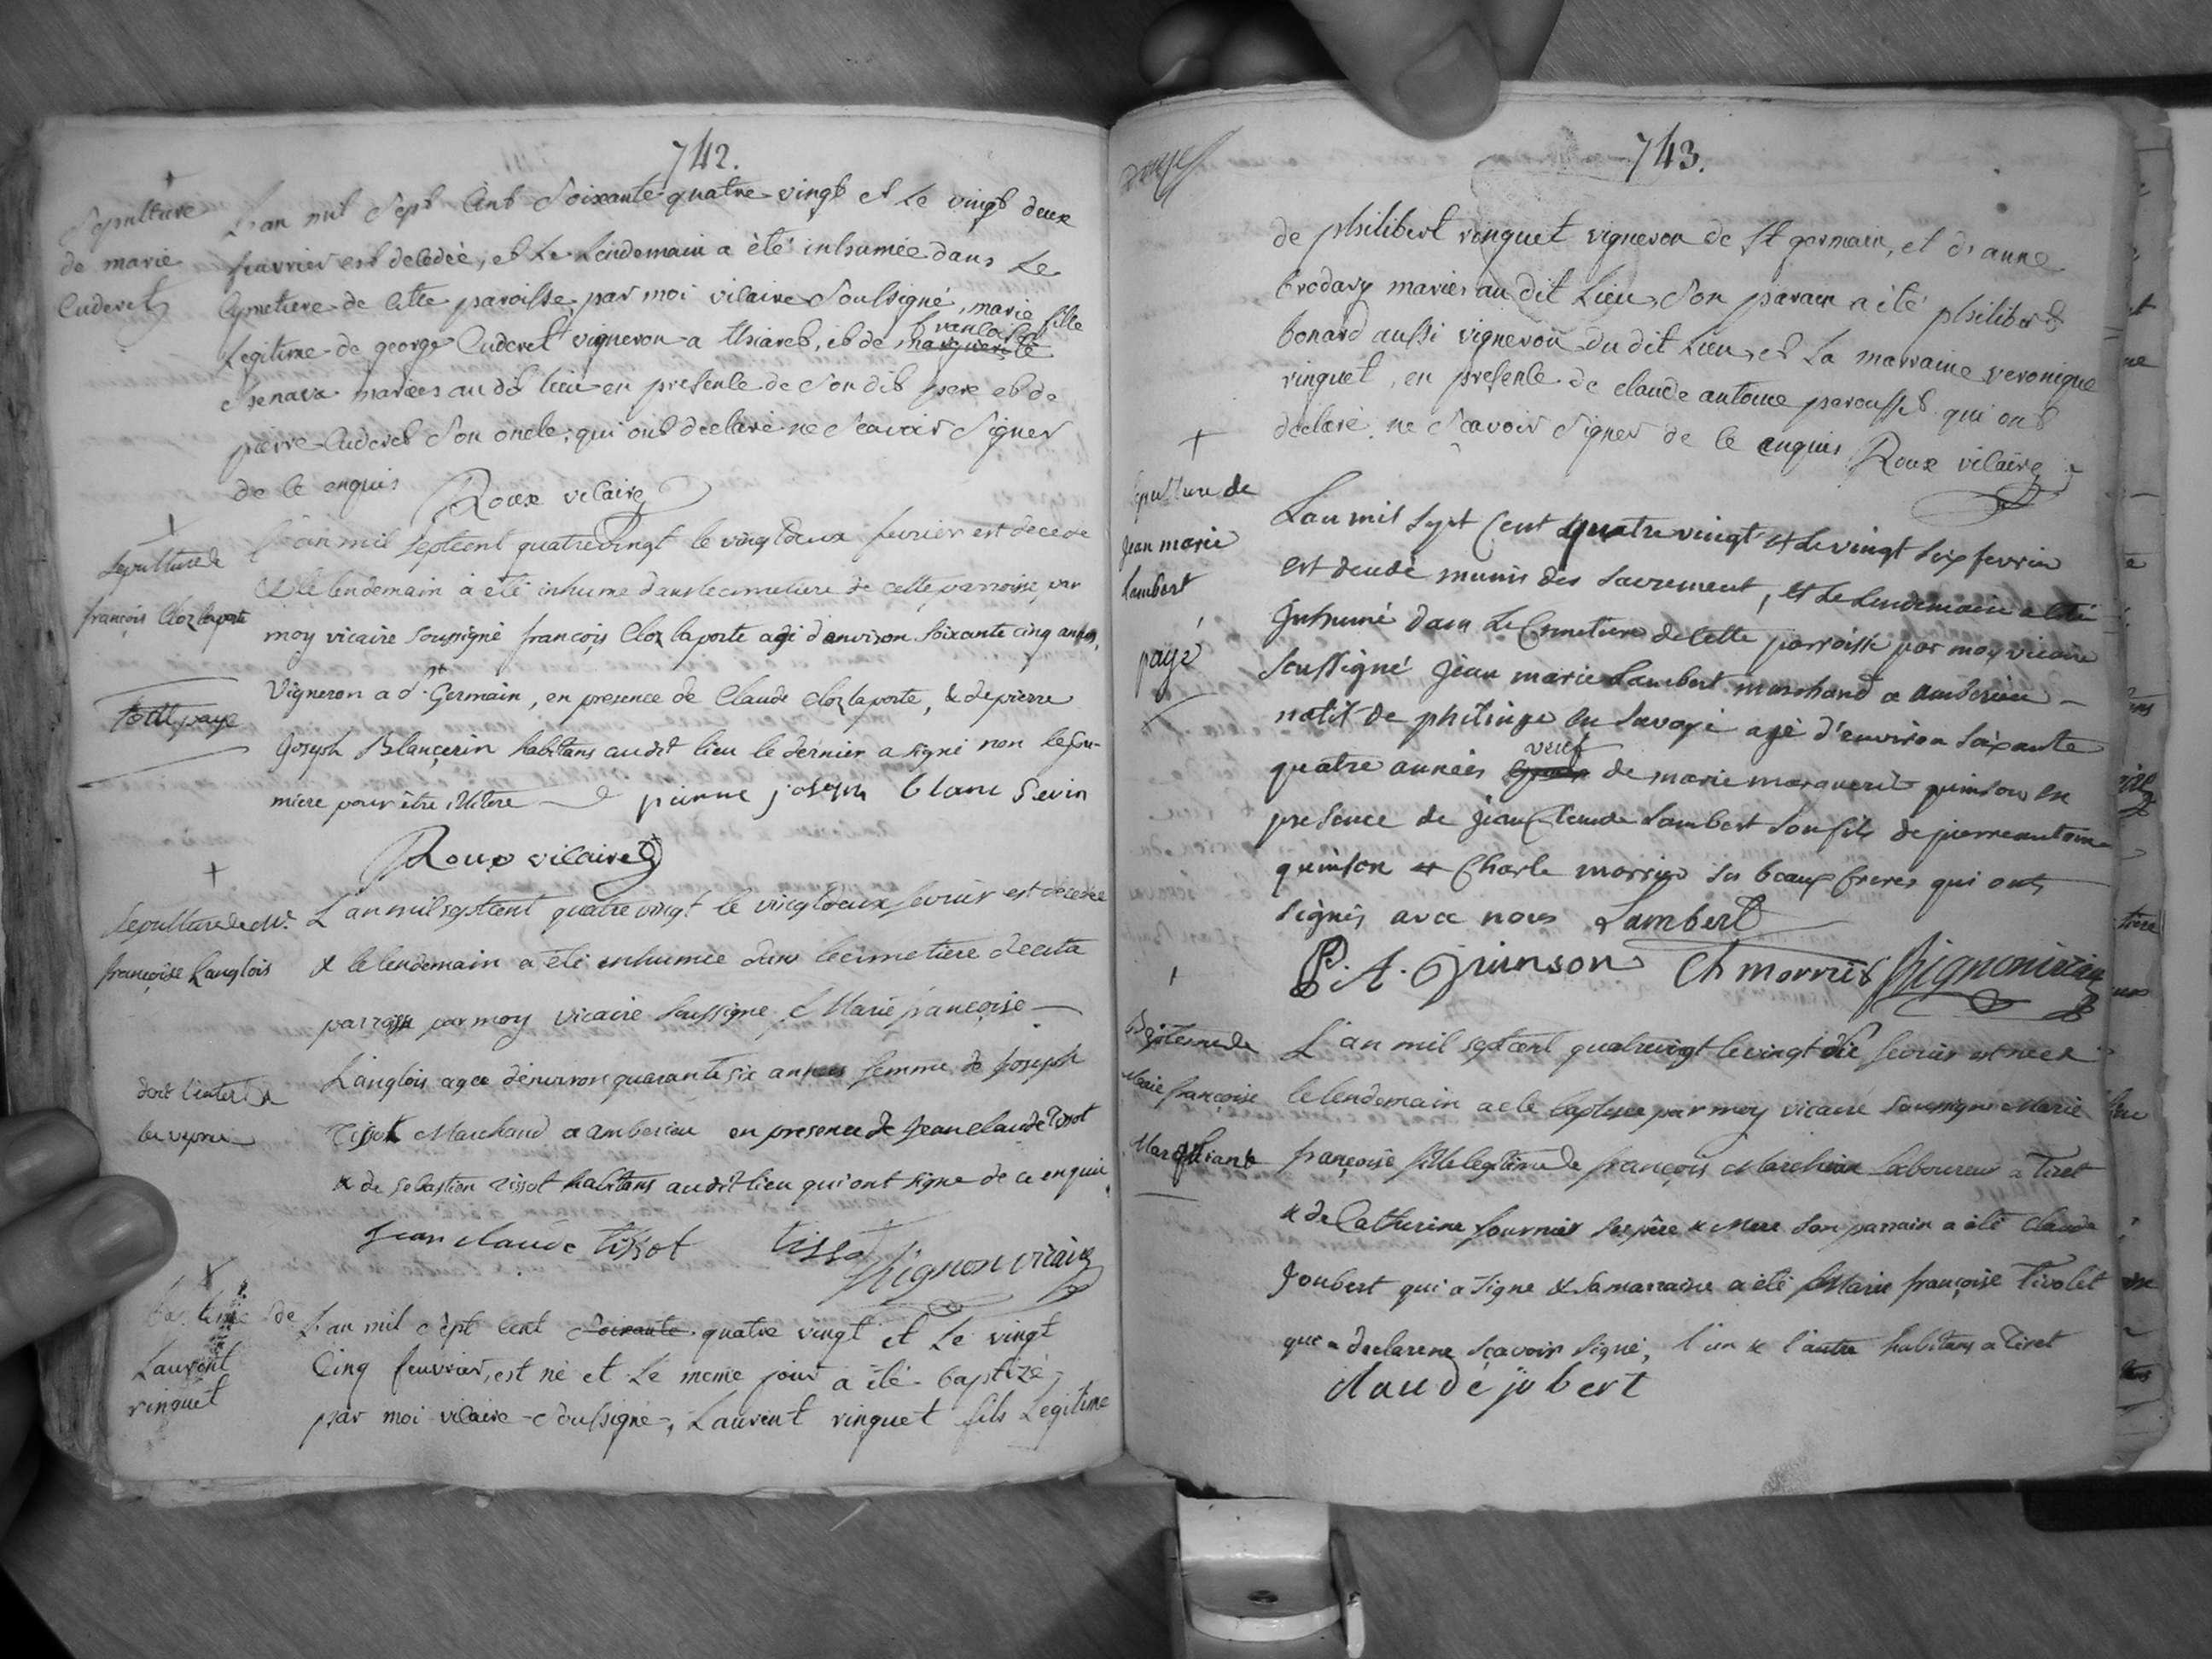 742.
Sepulture
de marie
Cuderet
L'an mil Sept Cent Soixante quatre vingt et le vingt deux
feuvrier est decedée, et Le Lendemain a été inhumée dans Le
Cymetiere de Cette paroisse, par moi vicaire Soussigné, marie fille
francoise
Legitime de george Cuderet vigneron a , et de marguerite
mariées au dit lieu en presence de Son dit pere et de
pierre Cuderet Son oncle, qui ont declaré ne Scavoir Signer
de Ce enquis Roux vicaire
Sepulture de
françois Cloz laporte
paye
L'an mil septcent quatrevingt le vingtdeux fevrier est decede
& le lendemain à eté inhume dans le cimetiere de cette parroisse par
moy vicaire soussigné françois Cloz laporte agé d'environ soixante cinq années,
Vigneron a St Germain, en presence de Claude Cloz laporte, & de pierre
Joseph Blancsevin habitans audit lieu le dernier a signé non le pre-
mier pour être illitere pierre joseph blanc Sevin
Roux vicaire
Sepulture de Me
françoise Langlois
L'an mil septcent quatre vingt le vingtdeux fevrier est decedée
& le lendemain a été inhumée dans le cimetiere de cette
parroisse par moy vicaire soussigné, Marie françoise
Langlois agee d'environ quarante six années femme de Joseph
Tissot Marchand a amberieu en presence de Jean claude Tissot
& de sebastien Tissot habitans audit lieu qui ont signe de ce enquis
Jean claude tissot tissot Mignon vicaire
de
Laurent
rinquet
L'an mil Sept Cent Soixante quatre vingt et Le vingt
Cinq feuvrier, est né et Le même jour a été baptizé,
par moi vicaire Soussigné, Laurent rinquet fils Legitime
743.
de philibert rinquet vigneron de St germain, et d'anne
brodary mariés au dit Lieu, Son parain a été philibert
bonard aussi vigneron du dit Lieu, et La marraine veronique
rinquet, en presence de claude antoine perousset qui ont
declaré ne Sçavoir Signer de Ce enquis Roux vicaire
Sepulture de
Jean marie
Lambert
payé
L'an mil Sept Cent quatre vingt et Le vingt Six fevrier
est decedé munis des Sacrement, et Le Lendemain a été
Inhumé dans Le Cimetiere de Cette parroisse par moy vicaire
Soussigné Jean marie Lambert marchand a amberieu
natif de philinge en Savoye agé d'environ Soixante
veuf
quatre années de marie marguerite quinson en
presence de Jean Claude Lambert Son fils de pierre antoine
quinson et Charle morrier Ses beaux freres qui ont
Signés avec nous Lambert
P. A. Quinson Ch morrier Mignon vicaire
Bâtesme de
Marie françoise
L'an mil septcent quatrevingt le vingt six fevrier est nee &
le lendemain a ete baptisee par moy vicaire soussigne Marie
françoise fille legitime de françois laboureur a Tiret
& de Catherine fournier ses père & Mere son parrain a été claude
Joubert qui a signe & sa marraine a été Marie françoise Tivolet
que a declare ne sçavoir signé, l'un & l'autre habitans a Tiret
claude jobert